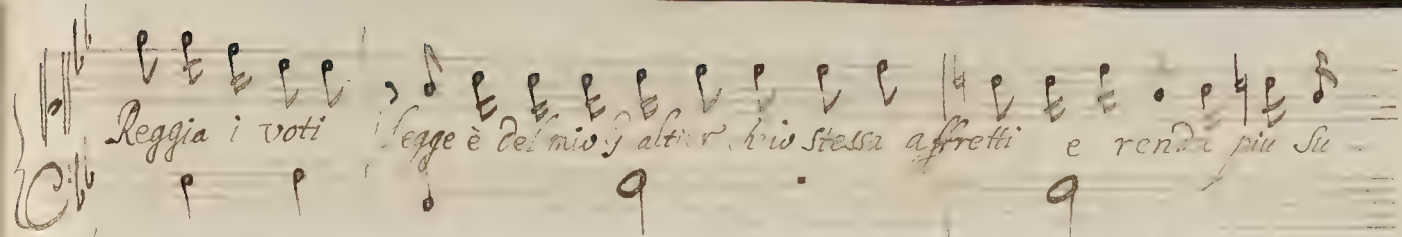 Reggia i voti legge è del mio altier ch'io stessa affretti e renda piu su